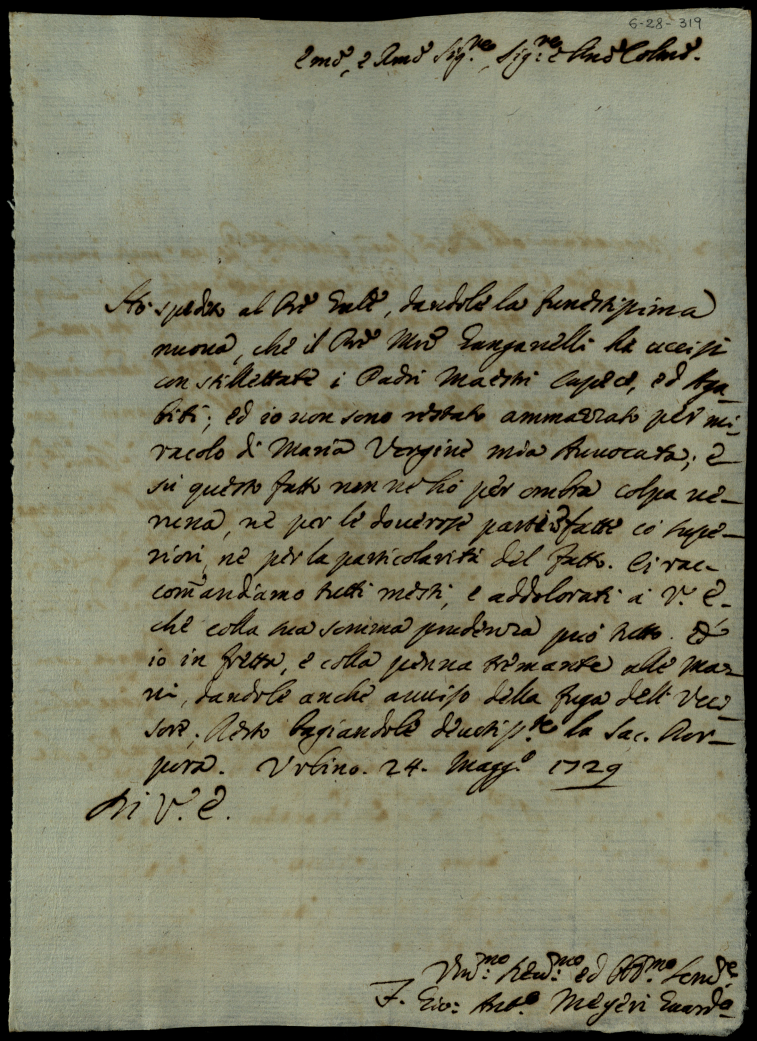 6-28-319
Emo, e Rmo Sig.re, Sig.re e Pne Colmo.
Ho spedito al Pre Gnle, dandole la funestissima
nuova, che il Pre Mro Ganganelli ha uccisi
con stillettate i Padri Maestri Capeci, ed Aga-
biti; ed io non sono restato ammazzato per mi-
racolo di Maria Vergine mia Avvocata; e
su questo fatto non ne hò per ombra colpa ve-
runa, nè per le doverose parti fatte co' Supe-
riori, nè per la particolarità del fatto. Ci rac-
comandiamo tutti mesti, e addolorati à V. E.
che colla sua somma prudenza può tutto. Ed
io in fretta, e colla penna tremante alle Ma-
ni, dandole anche avviso della fuga dell'Ucci-
sore; Resto bagiandole devotis.te la Sac. Por-
pora. Urbino. 24. Magg.o 1729
Di V. E.
Um.mo Dev.mo ed Obb.mo Serv.e
F. Gio: Ant.o Meyeri Guard.o